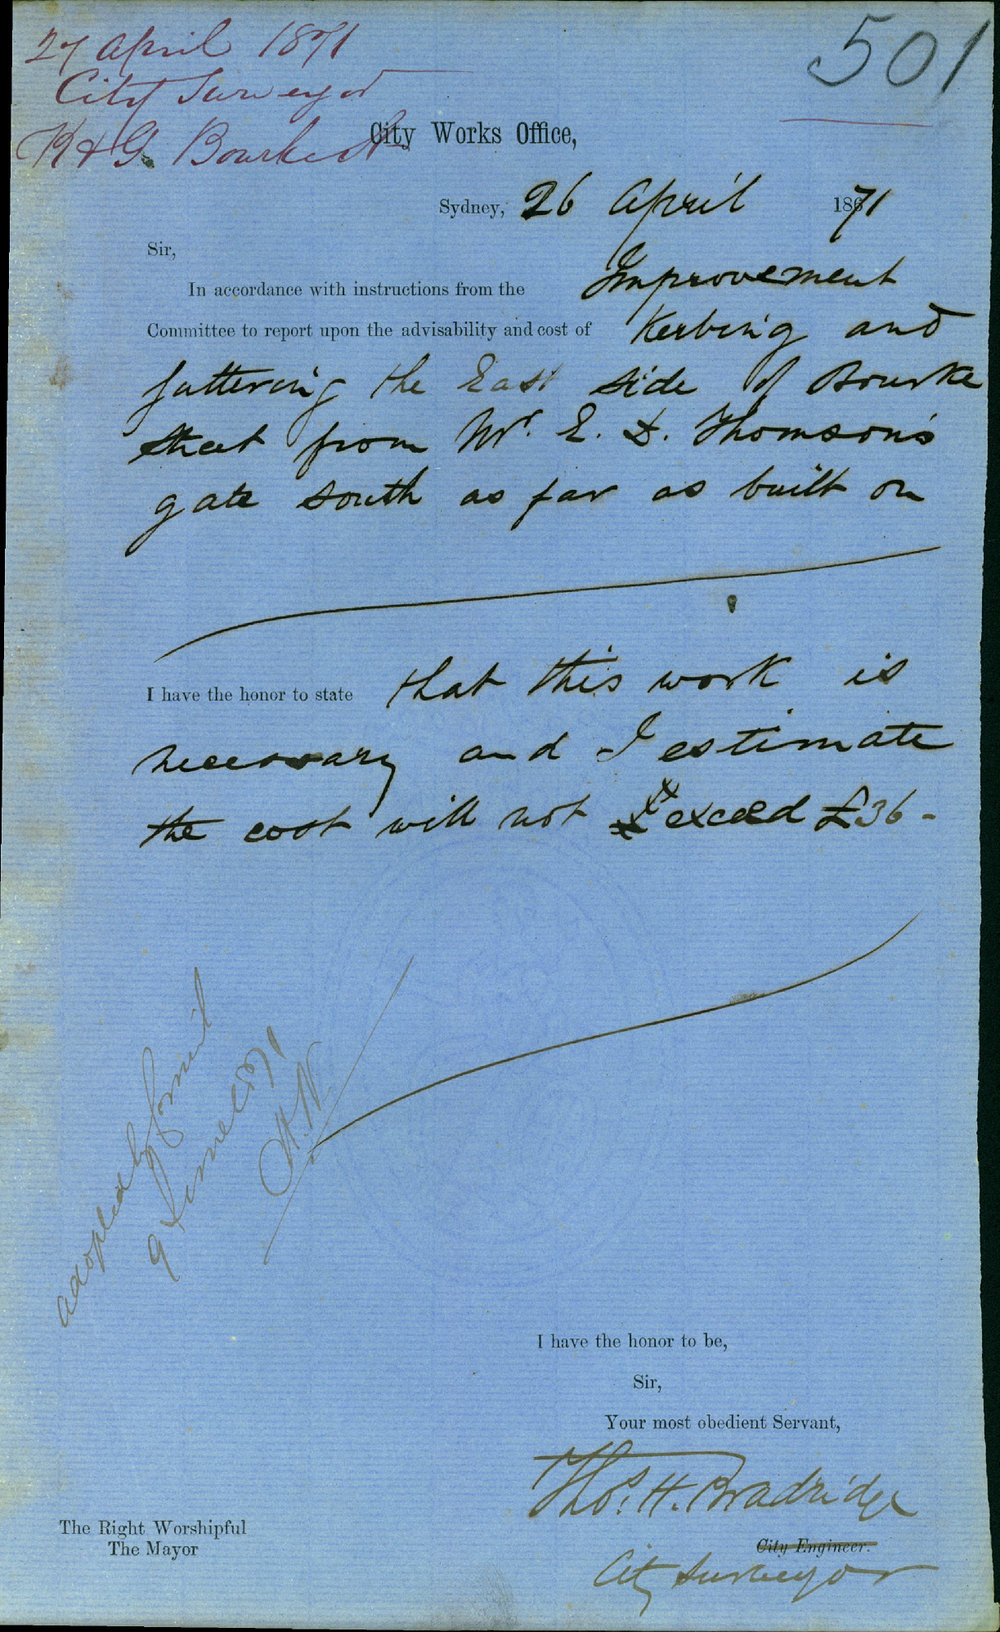 27 April 1871
501
City Surveyor
K & G Bourke St
City Works Office,
Sydney, 26 April 1871
Sir,
In accordance with instructions from the Improvement
Committee to report upon the advisability and cost of Kerbing and
guttering the East side of Bourke
Street from Mr. E. D. Thomson's
gate south as far as built on
I have the honor to state that this work is
necessary and I estimate
the cost will not exceed £36 -
adopted by Council
9 June 1871
I have the honor to be,
Sir,
Your most obedient Servant,
Thos. H. Bradridge
The Right Worshipful
The Mayor
City Engineer.
City Surveyor